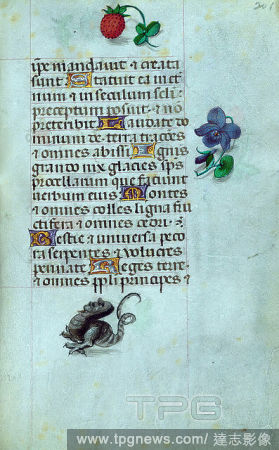 201
ipse mandavit et creata
sunt Statuit ea in eter
num et in seculum seli
preceptum posuit et nō
preteribit Laudate do
minum de terra dracōes
et omnes abissi Ignis
grando nix glacies sps
procellarum que faciunt
verbum eius Montes
et omnes colles ligna fru
ctifera et omnes cedri
Bestie et universa peco
ra serpentes et volucres
pennate Reges terre
et omnes ppli principes et
TPG
www.tpgnews.com/ 達志影像